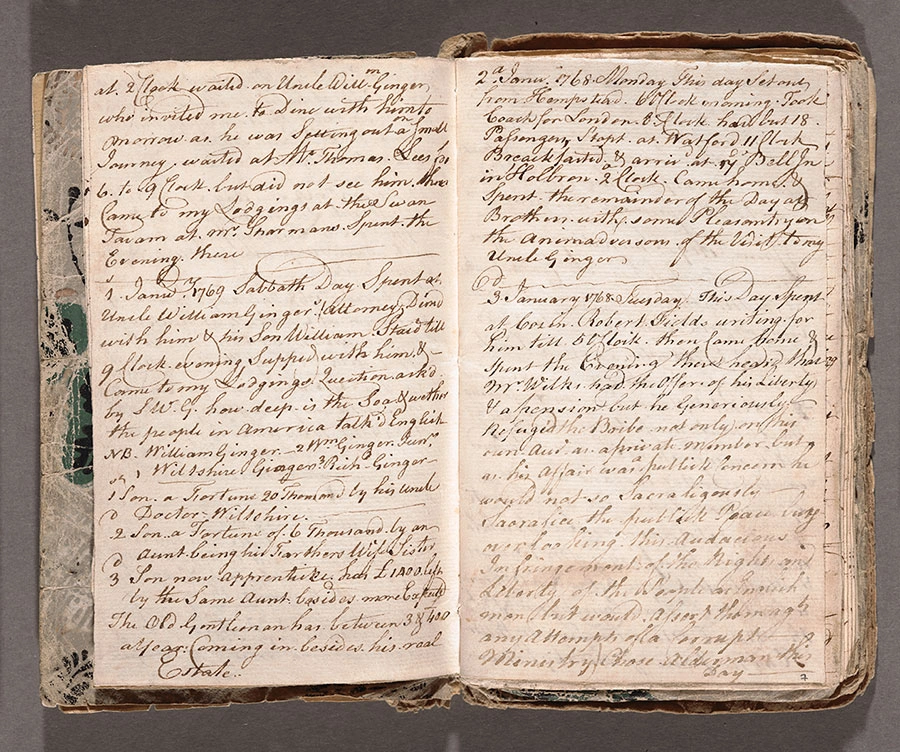 at 2 Clock waited on Uncle Willm Ginger
who invited me to Dine with him to
morrow as he was Setting out on a small
Journey. waited at Mr Thomas Lees fro
6 to 9 Clock but did not see him then
Came to my Lodgings at the Swan
Tavarn at mr Sharmans Spent the
Evening there
1 Janry 1769 Sabbath Day Spent at
Uncle William Ginger's Attorney Dind
with him & his Son William Staid till
9 Clock evening Supped with him &
Come to my Lodgings Question askd
by S W. G. how deep is the Sea & wether
the people in America Talk'd English
NB. William Ginger - 2 Wm Ginger Junr
1 Wiltshire Ginger 3 Rich Ginger
1 Son a Fortune 20 Thousand by his uncle
Docter Wiltshire.
2 Son a Fortune of 6 Thousand by an
aunt being his Farthers Wifes Sister
3 Son now apprentice has £1400 left
by the Same Aunt besides more Expectd
The Old Gentleman has between 3 & 400
a Year Coming in besides his real
Estate.
2d Janry 1768 Monday This day Set out
from Hempstead 6 Clock morning Took
Coach for London 8 Clock had but 18
Passengers Stopt at Watford 11 Clock
Breackfasted & arriv'd at ye Bell Inn
in Holbron 2 Clock Came home &
Spent the remainder of the Day at
Brothers with some Pleasantry on
the animadversons of the Visit to my
Uncle Ginger
3d January 1768 Tuesday This Day Spent
at Cosin Robert Fields writing for
him till 5 Clock then Came home &
Spent the Evening there heard that
Mr Wilks had the Offer of his Liberty
& a pension but he Generiously
Refused the Bribe not only on his
own Acct as a private member but
as his Affair was a publick Concern he
would not so Sacraligously
Sacrafice the publick Peace by
over looking this Audacious
Infringement of the Right and
Liberty of the People as English
men but would Assert them agst
any Attempts of a Corrupt
Ministry Chose Alderman this
Day
7